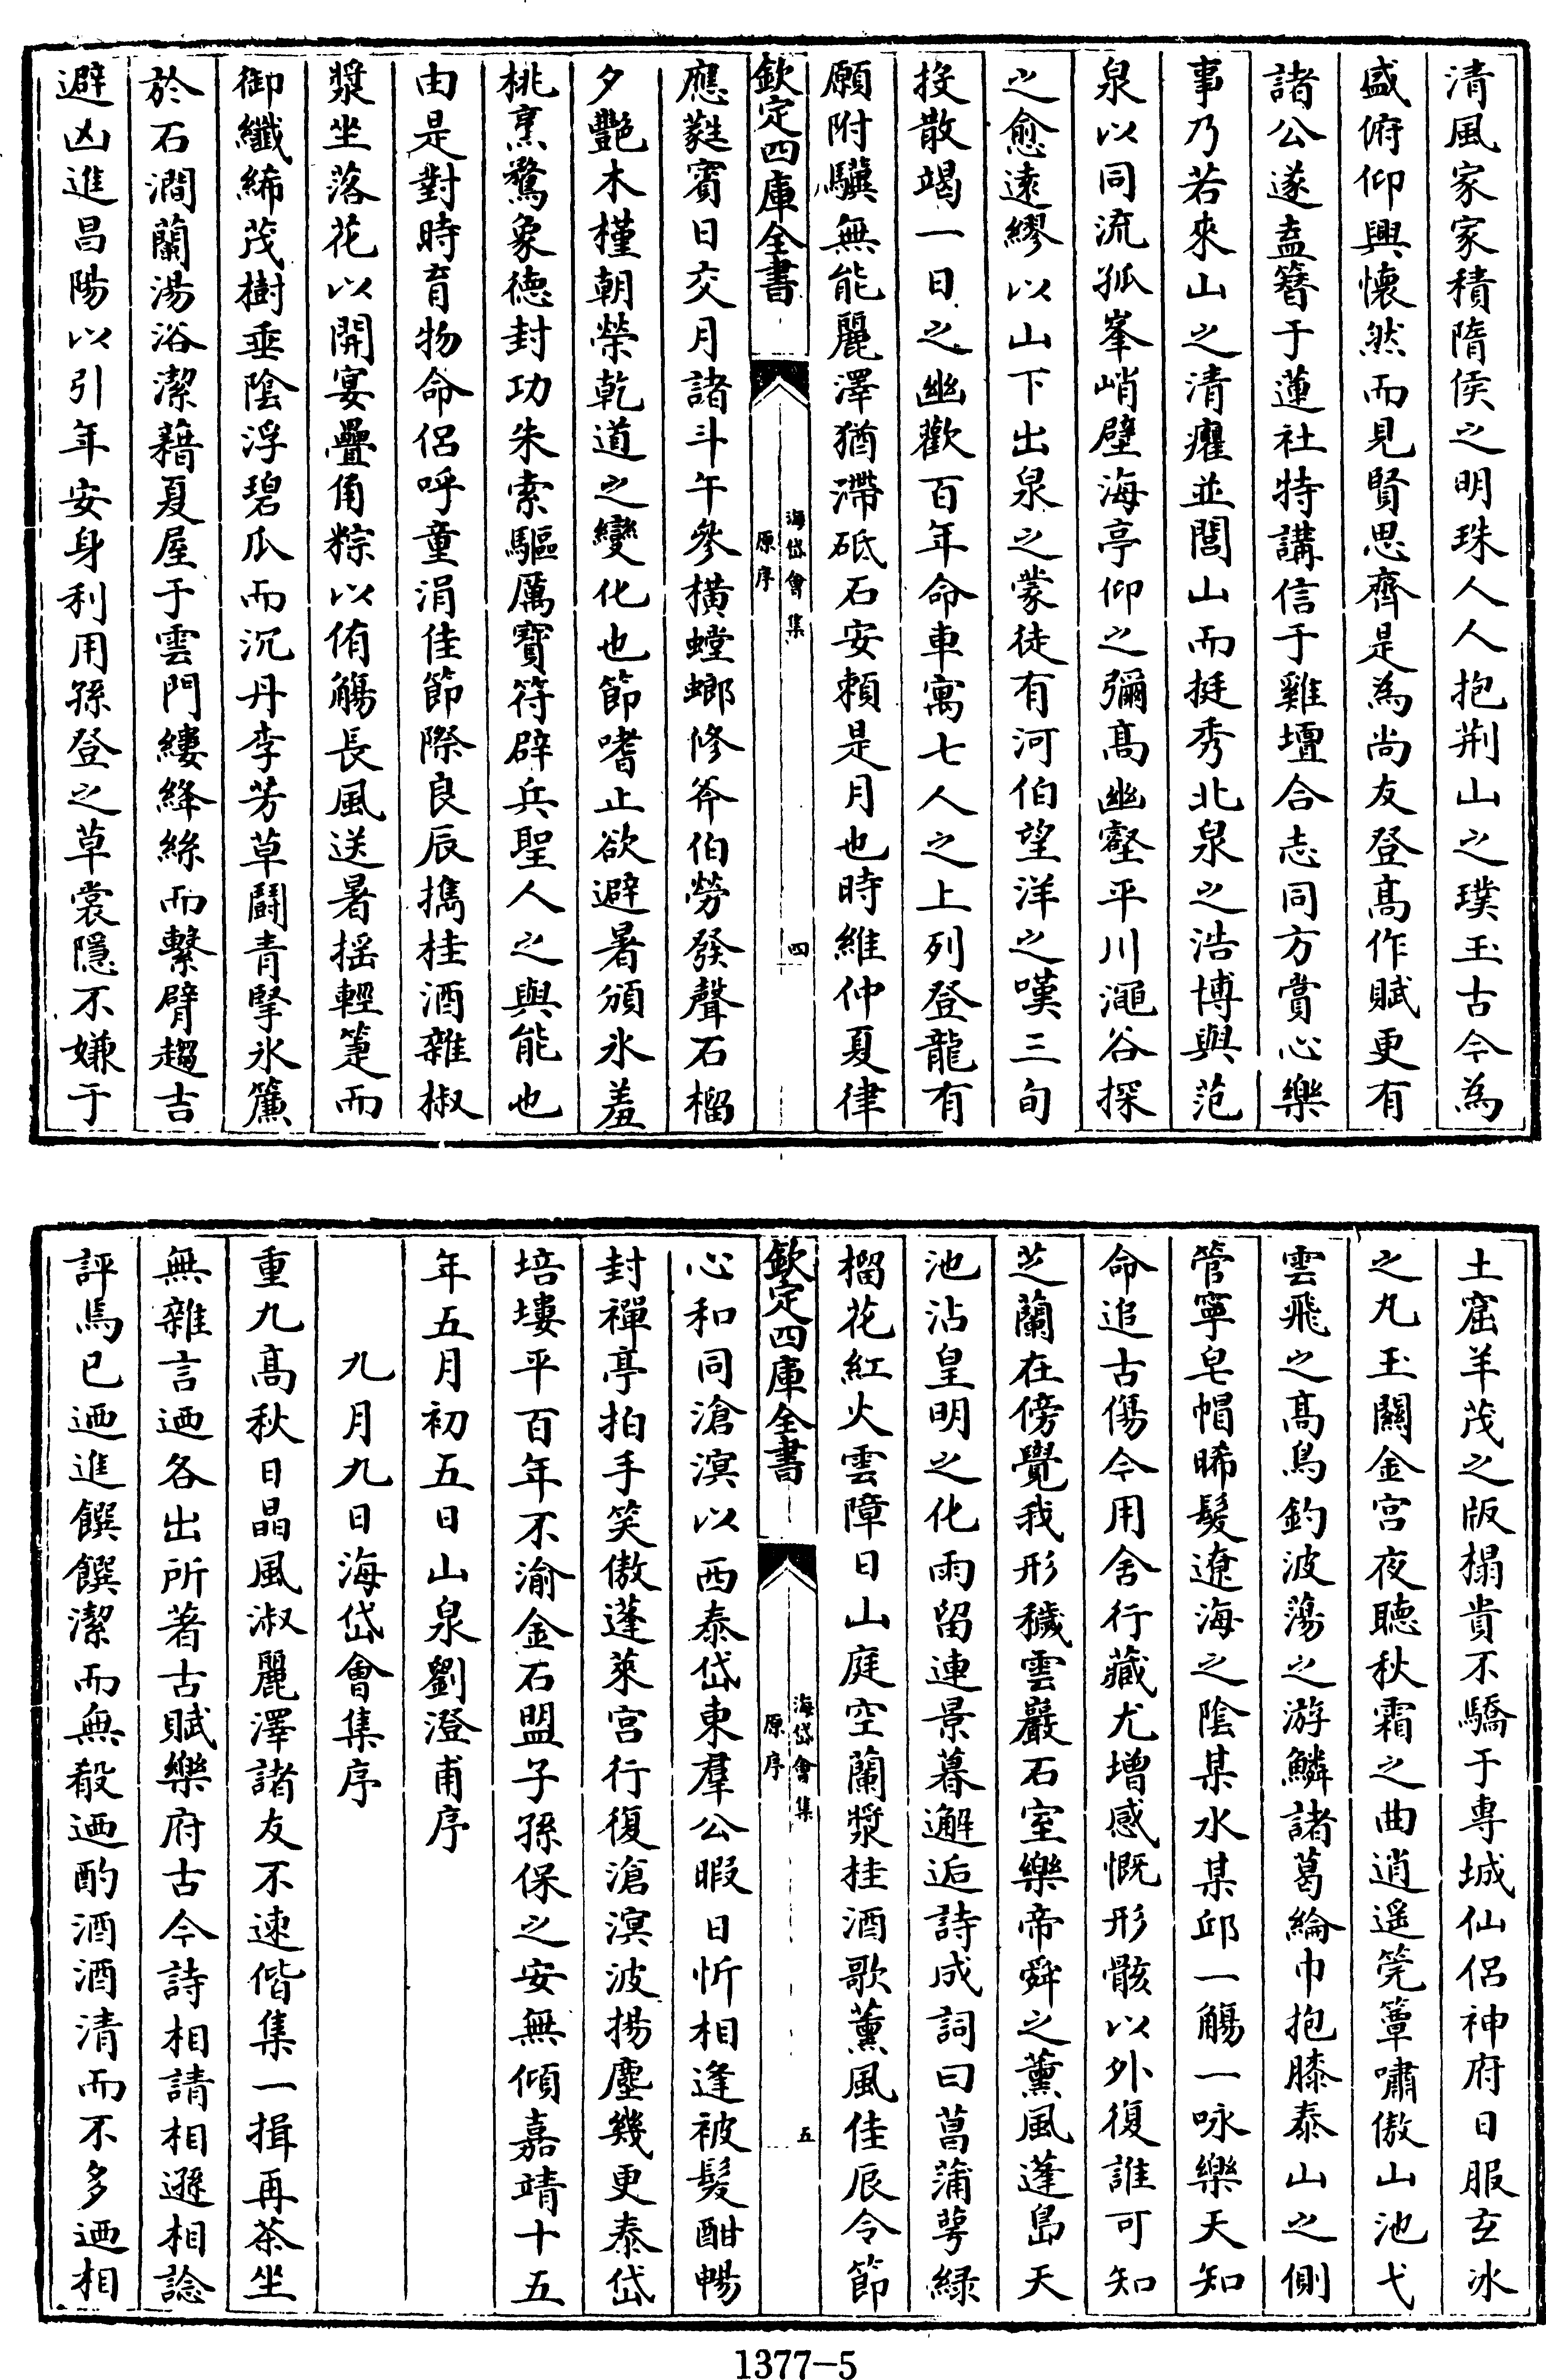 清風家家積隋侯之明珠人人抱荆山之璞玉古今為
盛俯仰興懷然而見賢思齊是為尚友登髙作賦更有
諸公遂盍簪于蓮社特講信于雞壇合志同方賞心樂
事乃若來山之清癯並閭山而挺秀北泉之浩博與范
泉以同流孤峯峭壁海亭仰之彌髙幽壑平川澠谷探
之愈遠繆以山下出泉之蒙徒有河伯望洋之嘆三旬
投散竭一日之幽歡百年命車寓七人之上列登龍有
願附驥無能麗澤猶滯砥石安賴是月也時維仲夏律
欽定四庫全書
海岱會集
原序
四
應蕤賓日交月諸斗午參橫螳螂修斧伯勞發聲石榴
夕艷木槿朝榮乾道之變化也節嗜止欲避暑頒氷羞
桃烹驚象德封功朱索驅厲寶符辟兵聖人之與能也
由是對時育物命侣呼童涓佳節際良辰擕桂酒雜椒
漿坐落花以開宴疊角粽以侑觴長風送暑揺輕箑而
御纖絺茂樹垂陰浮碧瓜而沉丹李芳草鬭青擘氷簾
於石澗蘭湯浴潔藉夏屋于雲門縷絳絲而繫臂趨吉
避凶進昌陽以引年安身利用孫登之草裳隱不嫌于
土窟羊茂之版榻貴不驕于專城仙侣神府日服玄冰
之丸玉闗金宫夜聽秋霜之曲逍遥筦簟嘯傲山池弋
雲飛之髙鳥釣波蕩之游鱗諸葛綸巾抱膝泰山之側
管寧皂帽晞髮遼海之陰某水某邱一觴一咏樂天知
命追古傷今用舍行藏尤增感慨形骸以外復誰可知
芝蘭在傍覺我形穢雲巖石室樂帝舜之薰風蓬島天
池沾皇明之化雨留連景暮邂逅詩成詞曰菖蒲萼緑
榴花紅火雲障日山庭空蘭漿桂酒歌薰風佳辰令節
欽定四庫全書
海岱會集
原序
五
心和同滄溟以西泰岱東羣公暇日忻相逢被髮酣暢
封禪亭拍手笑傲蓬萊宫行復滄溟波揚塵幾更泰岱
培塿平百年不渝金石盟子孫保之安無傾嘉靖十五
年五月初五日山泉劉澄甫序
九月九日海岱會集序
重九髙秋日晶風淑麗澤諸友不速偕集一揖再茶坐
無雜言迺各出所著古賦樂府古今詩相請相遜相諗
評焉已迺進饌饌潔而無殽迺酌酒酒清而不多迺相
1377-5